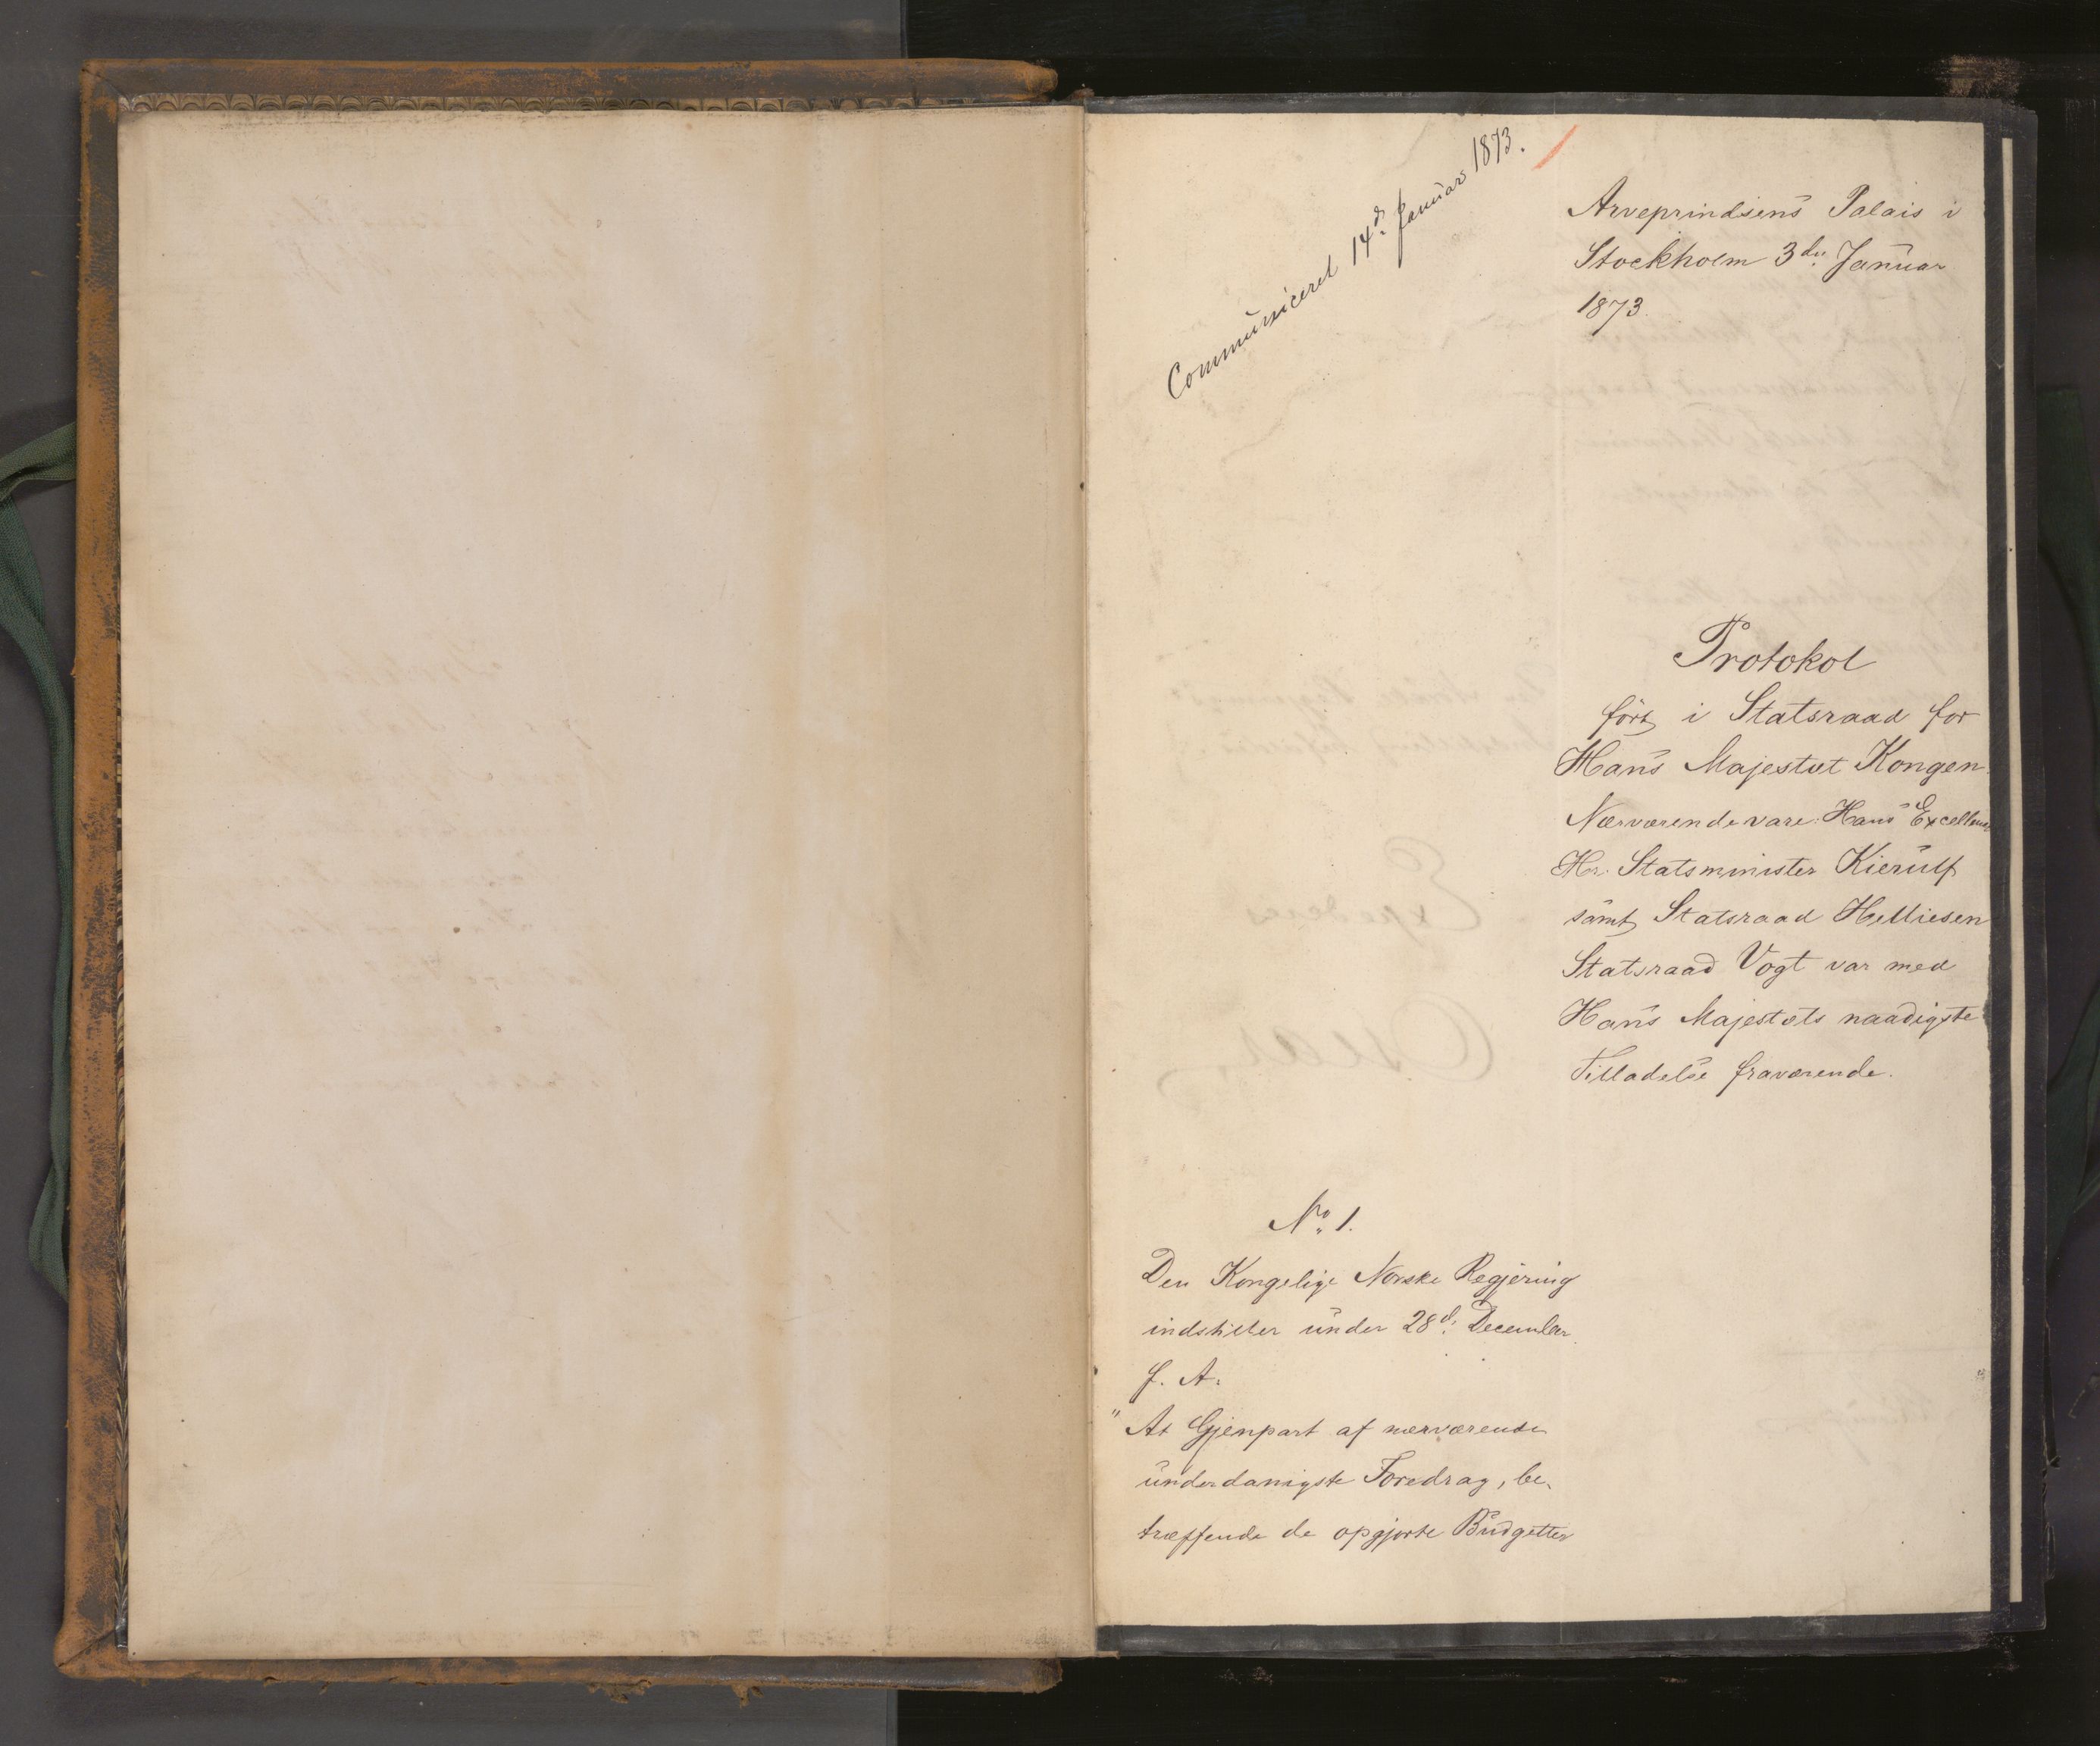 Communiceret 14d. Januar 1873.
Arveprindsens Palais i
Stockholm 3die Januar
1873.
Protokol
ført i Statsraad for
Hans Majestæt Kongen.
Nærværende vare: Hans Excellence
Hr. Statsminister Kierulf
samt Statsraad Helliesen
Statsraad Vogt var med
Hans Majestæts naadigste
Tilladelse fraværende.
No. 1.
Den Kongelige Norske Regjering
indstiller under 28d. December
f. A.
"At Gjenpart af nærværende
underdanigste Foredrag, be-
træffende de opgjorte Budgetter